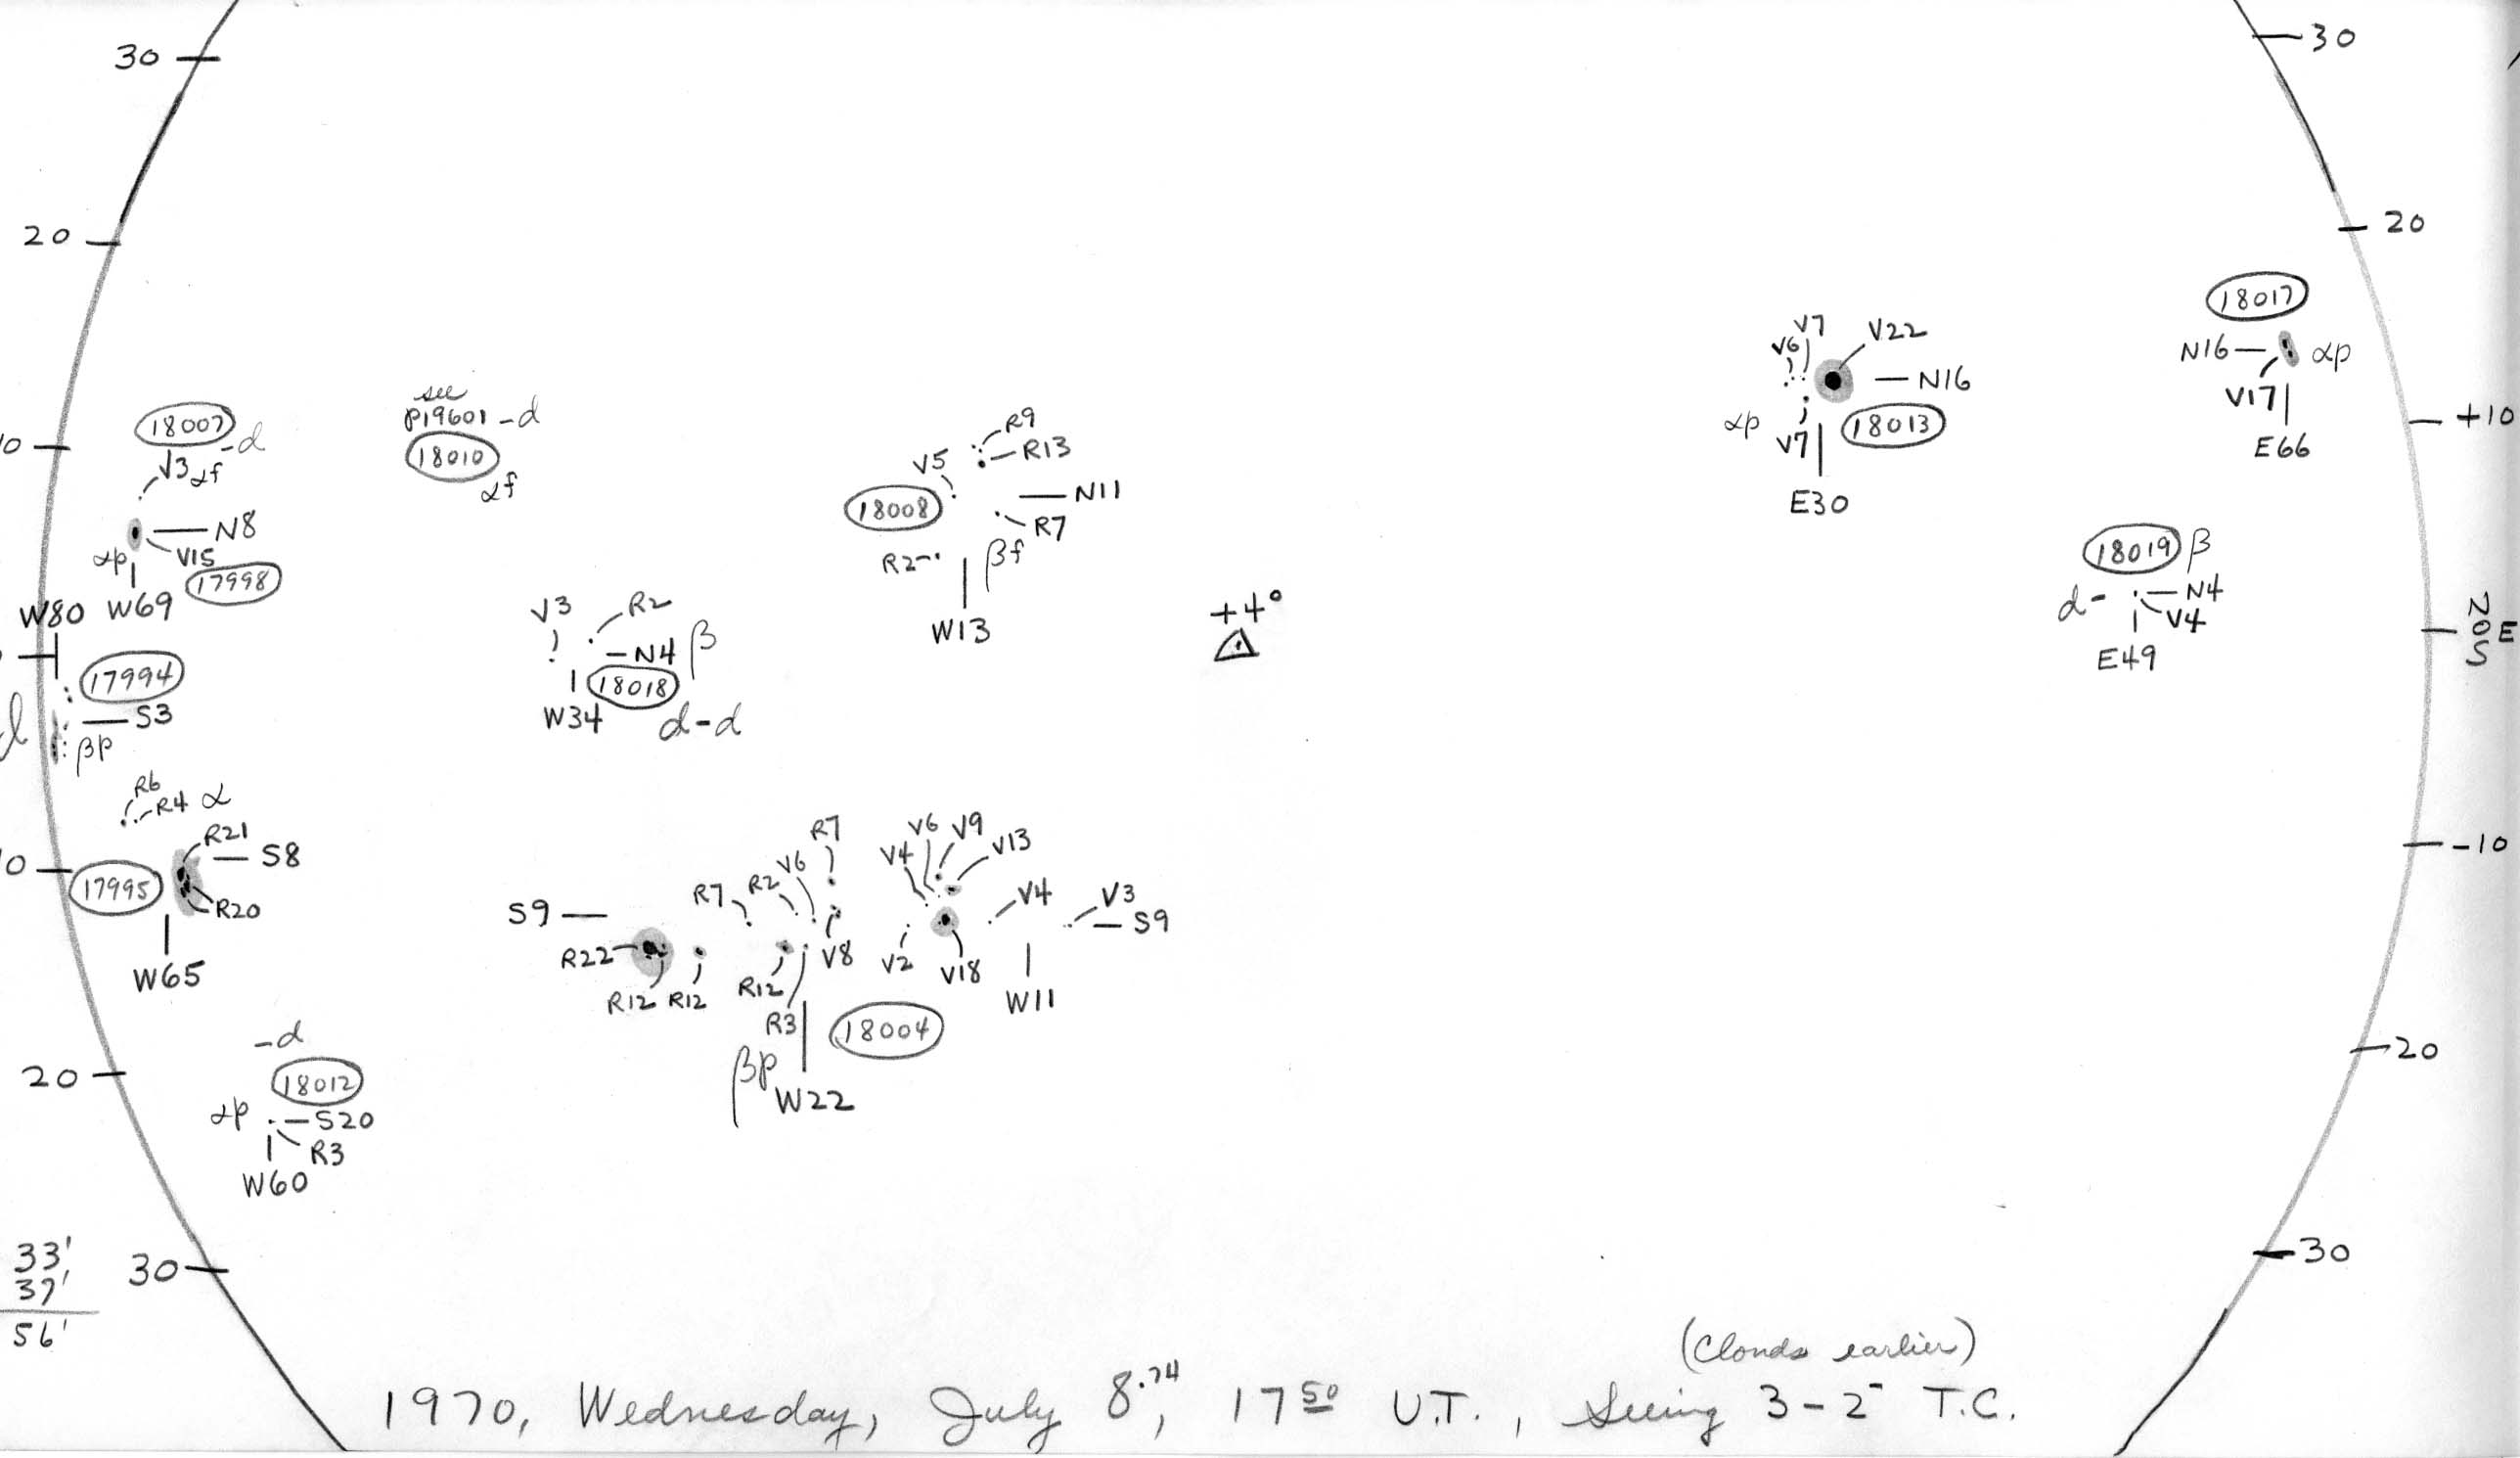 30
30
20
20
18017
N16
αp
V17
E66
V7
V22
V6
N16
αp
V7
18013
E30
+10
see
P19601 -d
18010
αf
18007
-d
V3
αf
N8
αp
V15
17998
W80
W69
R9
R13
V5
18008
N11
R7
R2
βf
W13
18019
β
d-
N4
V4
E49
V3
R2
N4
β
18018
W34
d-d
+4°
N
0 E
S
17994
S3
d
βp
R6
R4
α
R21
S8
17995
R20
W65
R7
V6
V9
V13
V6
V4
R2
R7
V4
V3
S9
S9
R22
V8
V2
V18
R12
R12
R12
R3
18004
W11
βp
W22
-10
-d
20
20
18012
αp
S20
R3
W60
33'
37'
56'
30
30
(Clouds earlier)
1970, Wednesday, July 8.74, 17 50 U.T., Seeing 3-2- T.C.